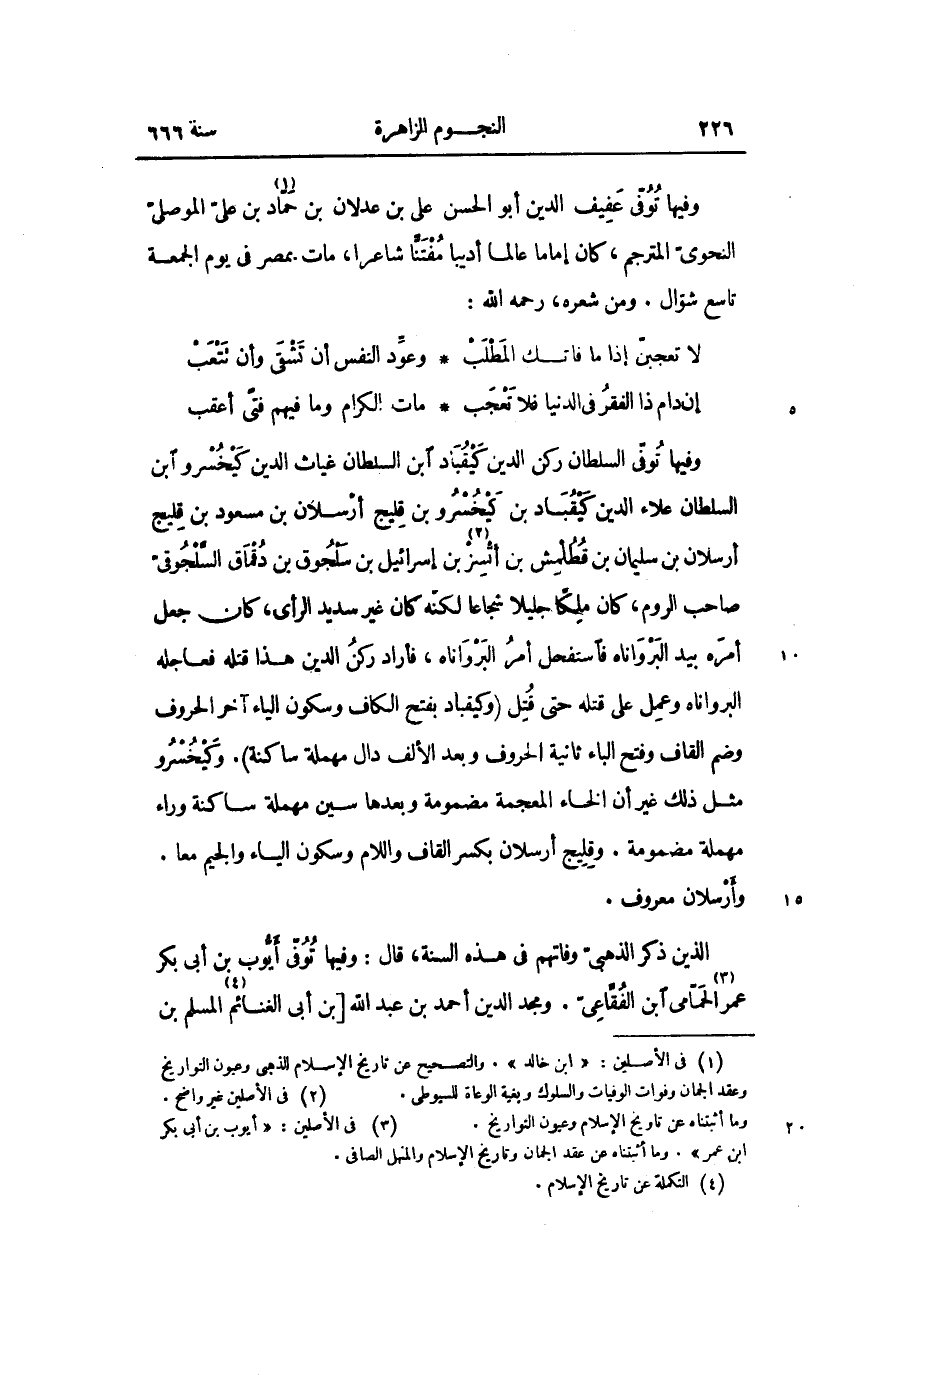 ٢٢٦ النجــوم الزاهرة سنة ٦٦٦
وفيها تُوُفّى عَفِيف الدين أبو الحسن على بن عدلان بن حَمَّاد(١) بن علىّ الموصلىّ
النحوىّ المترجم ، كان إماما عالما أديبا مُفْتَنًّا شاعرا، مات بمصر فى يوم الجمعة
تاسع شوّال . ومن شعره، رحمه الله :
لا تعجبنّ إذا ما فاتك المَطْلَبْ * وعوِّد النفس أن تَشْقَى وأن تَتْعَبْ
إن دام ذا الفقرُ فى الدنيا فلا تَعْجَب * مات الكرام وما فيهم فتًى أعقب
٥
وفيها تُوفّى السلطان ركن الدين كَيْقُبَاد آبن السلطان غياث الدين كَيْخُسْرو آبن
السلطان علاء الدين كَيْقُبَاد بن كَيْخُسْرُو بن قِليج أرْسلان بن مسعود بن قليج
أرسلان بن سليمان بن قُطُلْمِش بن أَتْسِز(٢) بن إسرائيل بن سَلْجُوق بن دُقْمَاق السَّلْجُوقىّ
صاحب الروم، كان ملِكًا جليلا شجاعا لكنّه كان غير سديد الرأى، كان جعل
أمرَه بيد البَرْوَاناه فآستفحل أمرُ البَرْوَاناه ، فأراد ركنُ الدين هذا قتله فعاجله
١٠
البرواناه وعمِل على قتله حتى قُتِل (وكيقباد بفتح الكاف وسكون الياء آخر الحروف
وضم القاف وفتح الباء ثانية الحروف وبعد الألف دال مهملة ساكنة). وكَيْخُسْرُو
مثل ذلك غير أن الخاء المعجمة مضمومة وبعدها سين مهملة ساكنة وراء
مهملة مضمومة . وقِلِيج أرسلان بكسر القاف واللام وسكون الياء والجيم معا .
وأَرْسلان معروف .
١٥
الذين ذكر الذهبىّ وفاتهم فى هذه السنة، قال : وفيها تُوُفّى أَيُّوب بن أبى بكر
عمر(٣) الحَمّامى آبن الفُقَّاعِىّ . ومجد الدين أحمد بن عبد الله [بن(٤) أبى الغنائم المسلم بن
(١) فى الأصلين : « ابن خالد » . والتصحيح عن تاريخ الإسلام الذهبى وعيون التواريخ
وعقد الجمان وفوات الوفيات والسلوك وبغية الوعاة للسيوطى . (٢) فى الأصلين غير واضح .
وما أثبتناه عن تاريخ الإسلام وعيون التواريخ . (٣) فى الأصلين : « أيوب بن أبى بكر
٢٠
ابن عمر » . وما أثبتناه عن عقد الجمان وتاريخ الإسلام والمنهل الصافى .
(٤) التكملة عن تاريخ الإسلام .